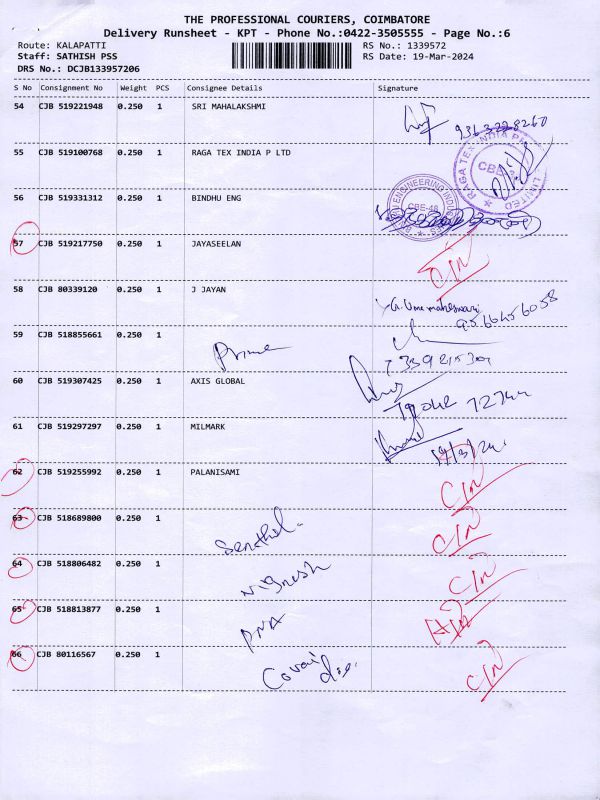 THE PROFESSIONAL COURIERS, COIMBATORE
Delivery Runsheet - KPT - Phone No.:0422-3505555 - Page No.:6
Route: KALAPATTI RS No.: 1339572
Staff: SATHISH PSS RS Date: 19-Mar-2024
DRS No.: DCJB133957206
S No Consignment No Weight PCS Consignee Details Signature
54 CJB 519221948 0.250 1 SRI MAHALAKSHMI
9363228260
55 CJB 519100768 0.250 1 RAGA TEX INDIA P LTD
RAGA TEX INDIA LIMITED CBE
56 CJB 519331312 0.250 1 BINDHU ENG
ENGINEERING CBE-48
57 CJB 519217750 0.250 1 JAYASEELAN
C/N
58 CJB 80339120 0.250 1 J JAYAN
G. Uma maheswari
9566456058
59 CJB 518855661 0.250 1
Prime
60 CJB 519307425 0.250 1 AXIS GLOBAL
61 CJB 519297297 0.250 1 MILMARK
19/3/24
62 CJB 519255992 0.250 1 PALANISAMI
C/N
63 CJB 518689800 0.250 1
Senthil C/N
64 CJB 518806482 0.250 1
Vignesh C/N
65 CJB 518813877 0.250 1
PNA
66 CJB 80116567 0.250 1
Covai C/N